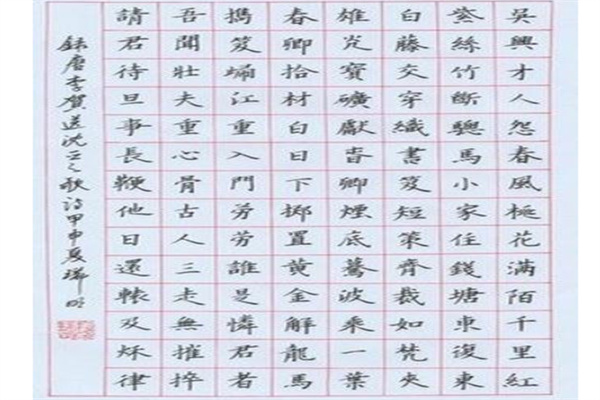 吳興才人怨春風桃花滿陌千里紅
紫絲竹斷驄馬小家住錢塘東復東
白藤交穿織書笈短策齊裁如梵夾
雄光寶礦獻春卿煙底驀波乘一葉
春卿拾材白日下擲置黃金解龍馬
攜笈歸江重入門勞勞誰是憐君者
吾聞壯夫重心骨古人三走無摧捽
請君待旦事長鞭他日還轅及秋律
錄唐李賀送沈亞之歌詩甲申夏璘明